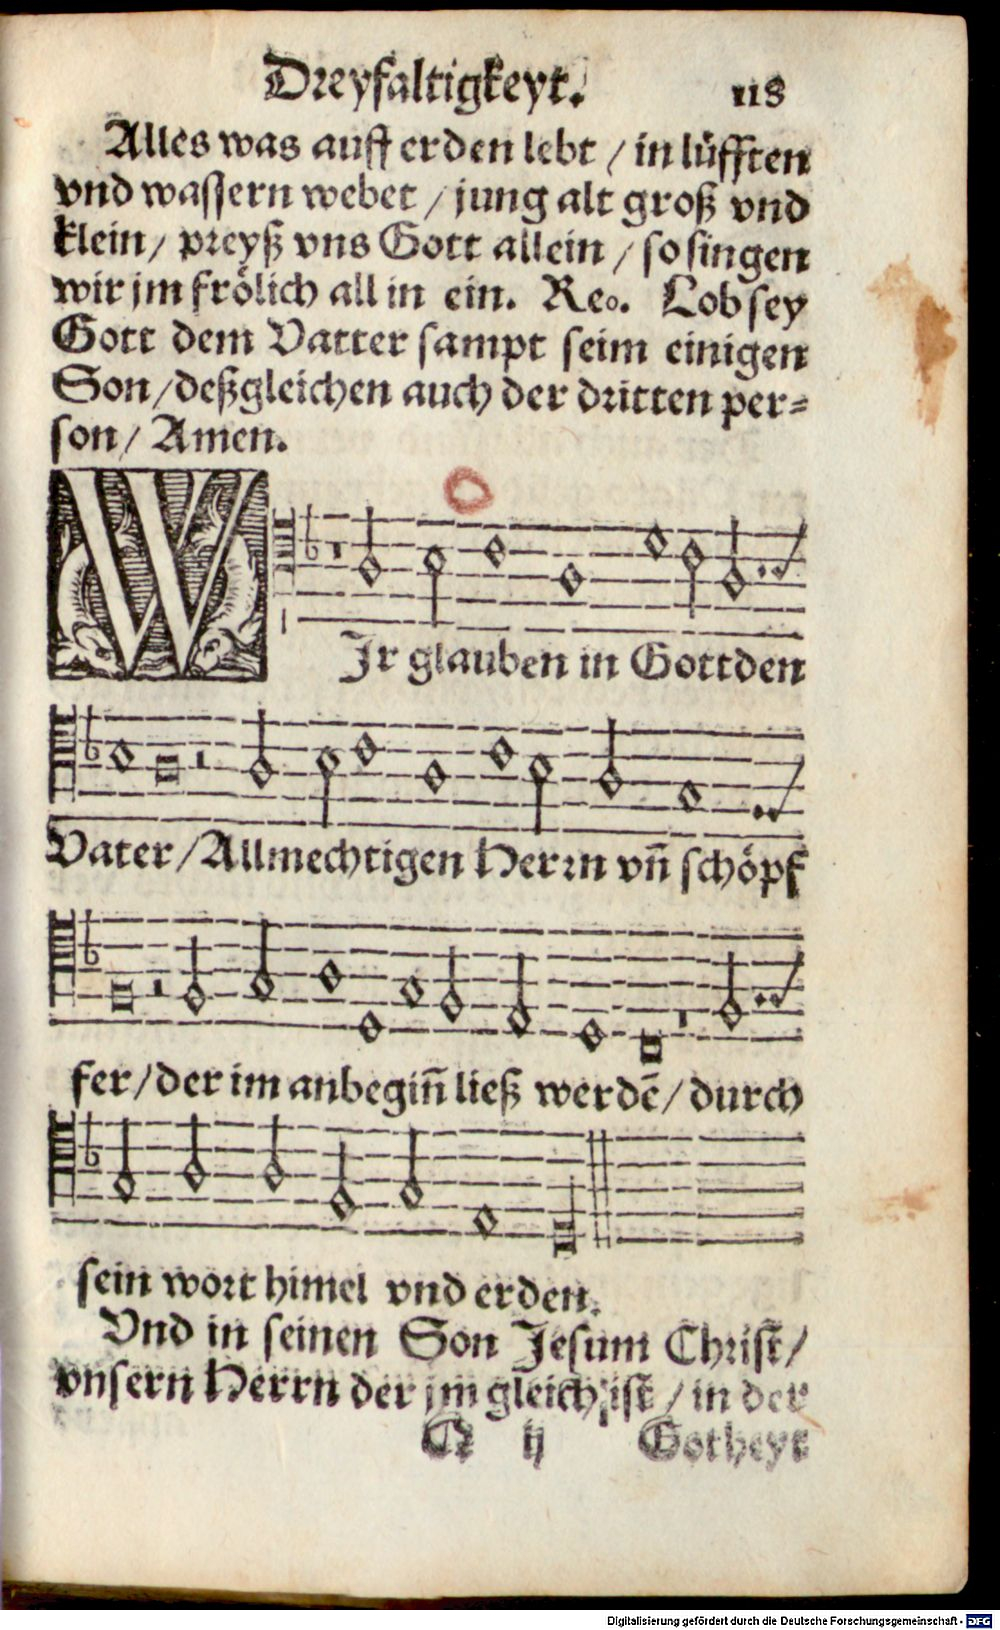 Dreyfaltigkeyt. 118
Alles was auff erden lebt / in lüfften
vnd wassern webet / jung alt groß vnd
klein / preyß vns Gott allein / so singen
wir jm frölich all in ein. Reo. Lob sey
Gott dem Vatter sampt seim einigen
Son / deßgleichen auch der dritten per=
son / Amen.
WJr glauben in Gott den
Vater / Allmechtigen Herrn vn̄ schöpf
fer / der im anbegin̄ ließ werdē / durch
sein wort himel vnd erden.
Vnd in seinen Son Jesum Christ /
vnsern Herrn der jm gleich ist / in der
Q ij Gotheyt
Digitalisierung gefördert durch die Deutsche Forschungsgemeinschaft - DFG